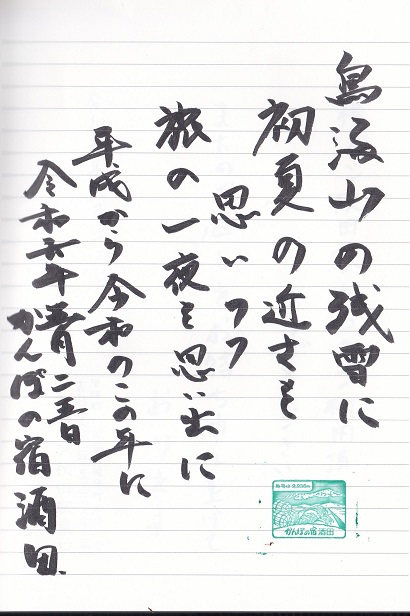 鳥海山の残雪に
初夏の近さを
思いつつ
旅の一夜を思い出に
平成から令和のこの年に
令和元年五月二五日
かんぽの宿酒田
鳥海山 2,236m
かんぽの宿 酒田